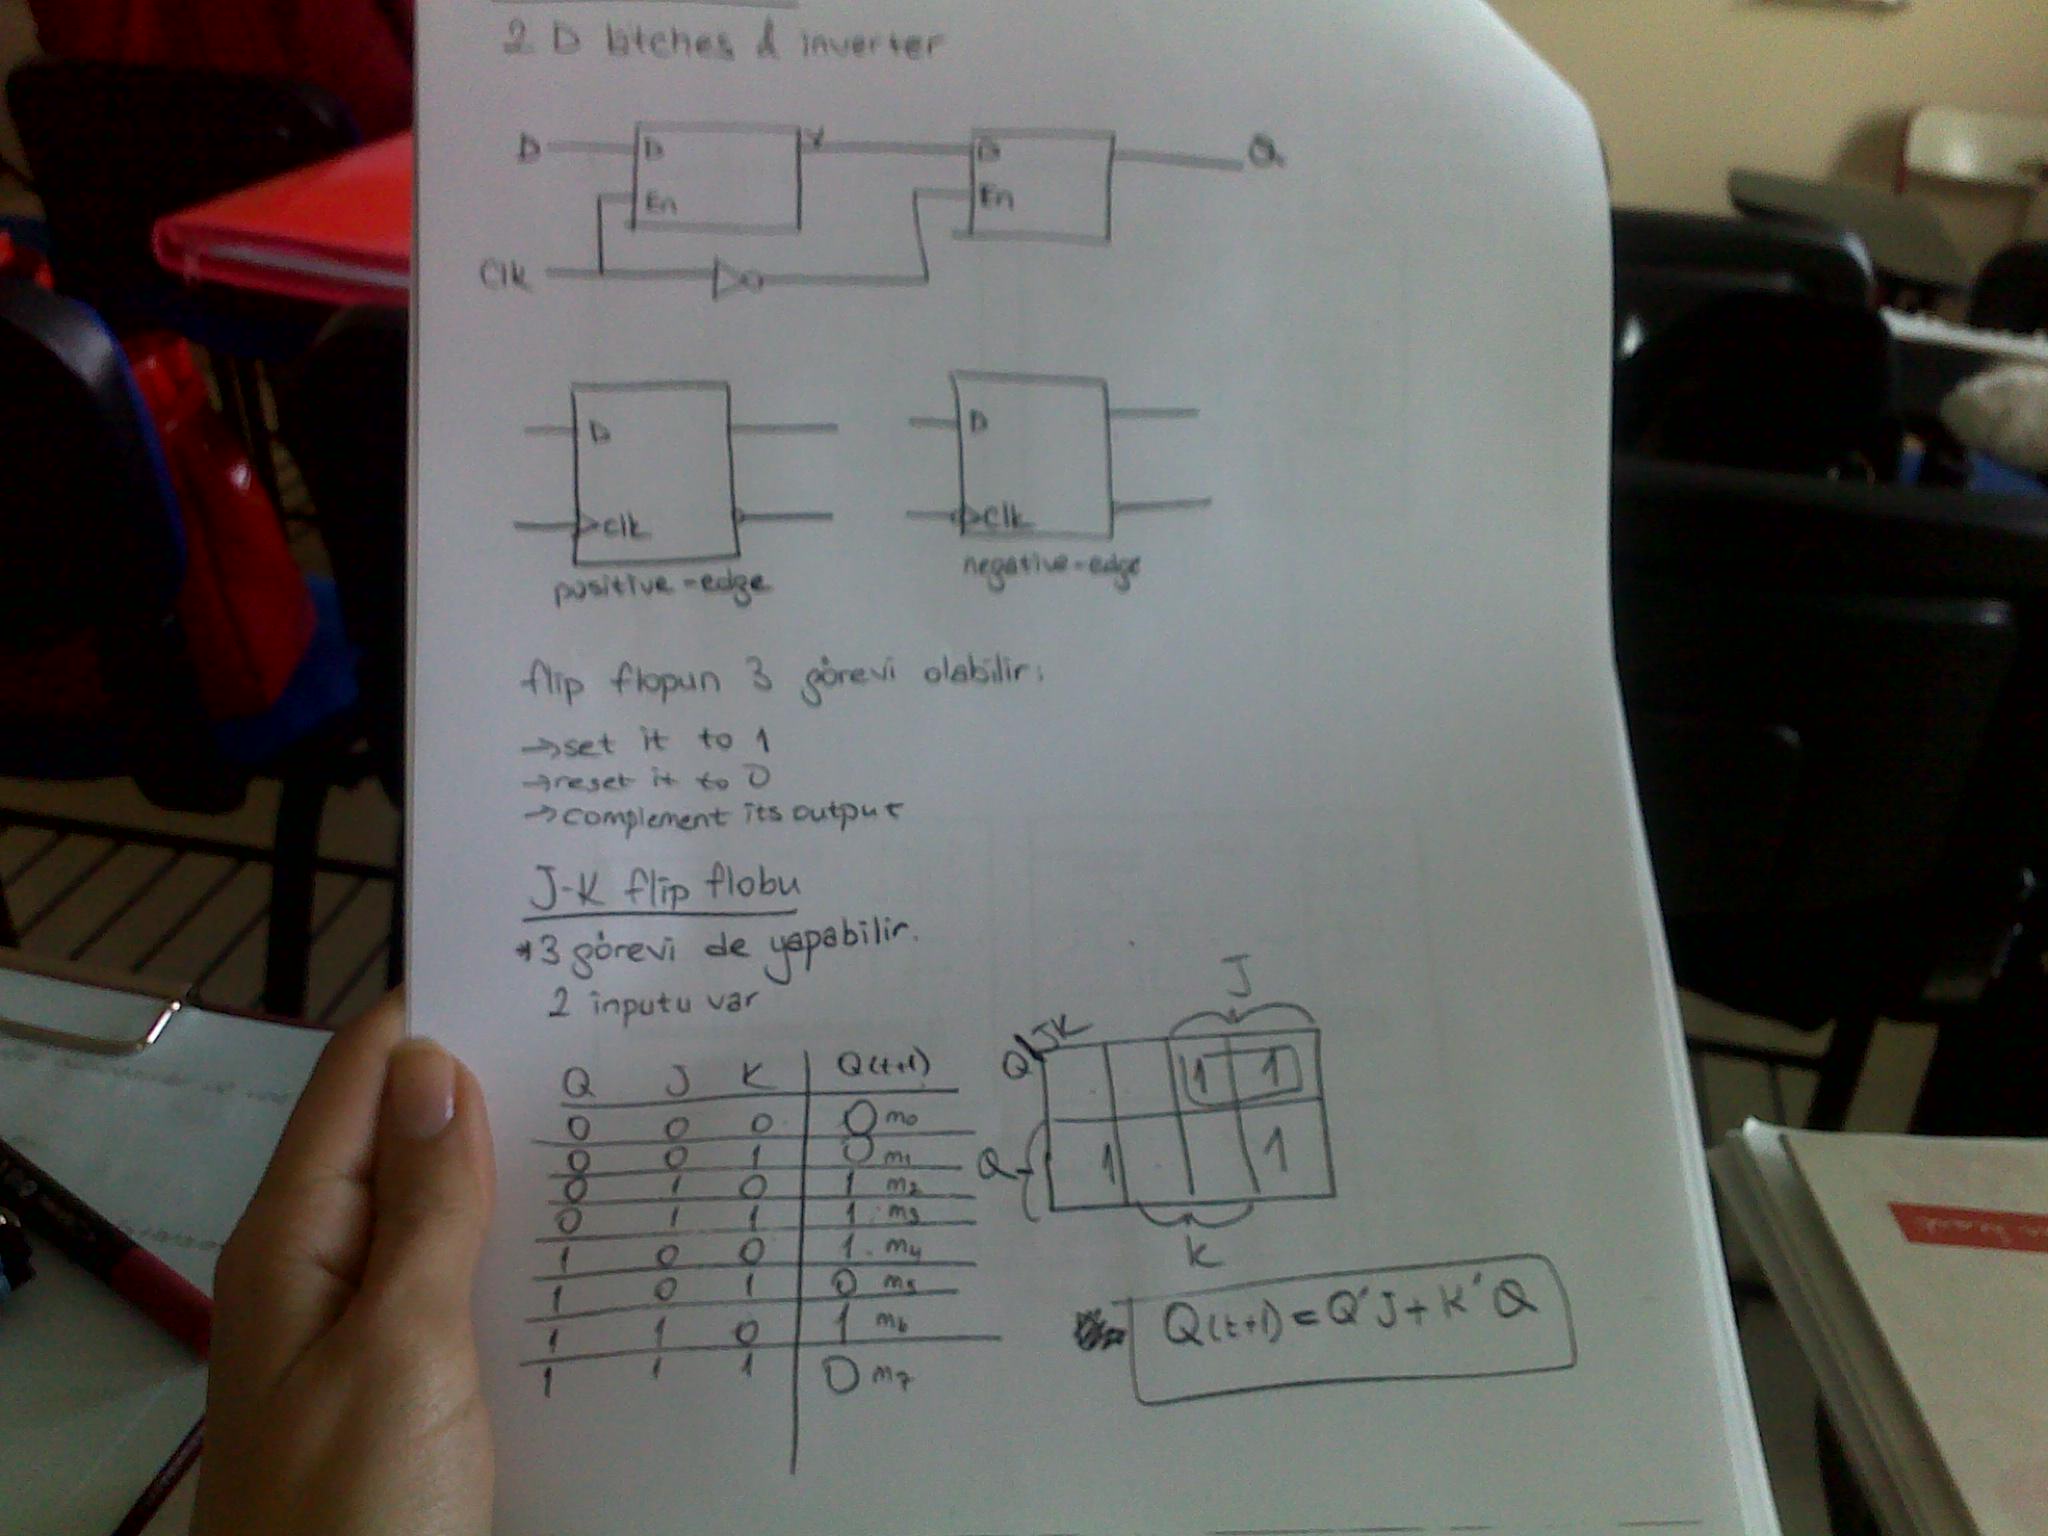 2 D latches & inverter
D D Y D Q
En En
Clk
D D
Clk Clk
positive-edge negative-edge
flip flopun 3 görevi olabilir:
→set it to 1
→reset it to 0
→complement its output
J-K flip flobu
*3 görevi de yapabilir.
2 inputu var
J
Q\JK
1 1
Q 1 1
K
Q J K Q(t+1)
0 0 0 0 m0
0 0 1 0 m1
0 1 0 1 m2
0 1 1 1 m3
1 0 0 1 m4
1 0 1 0 m5
1 1 0 1 m6
1 1 1 0 m7
Q(t+1) = Q'J + K'Q